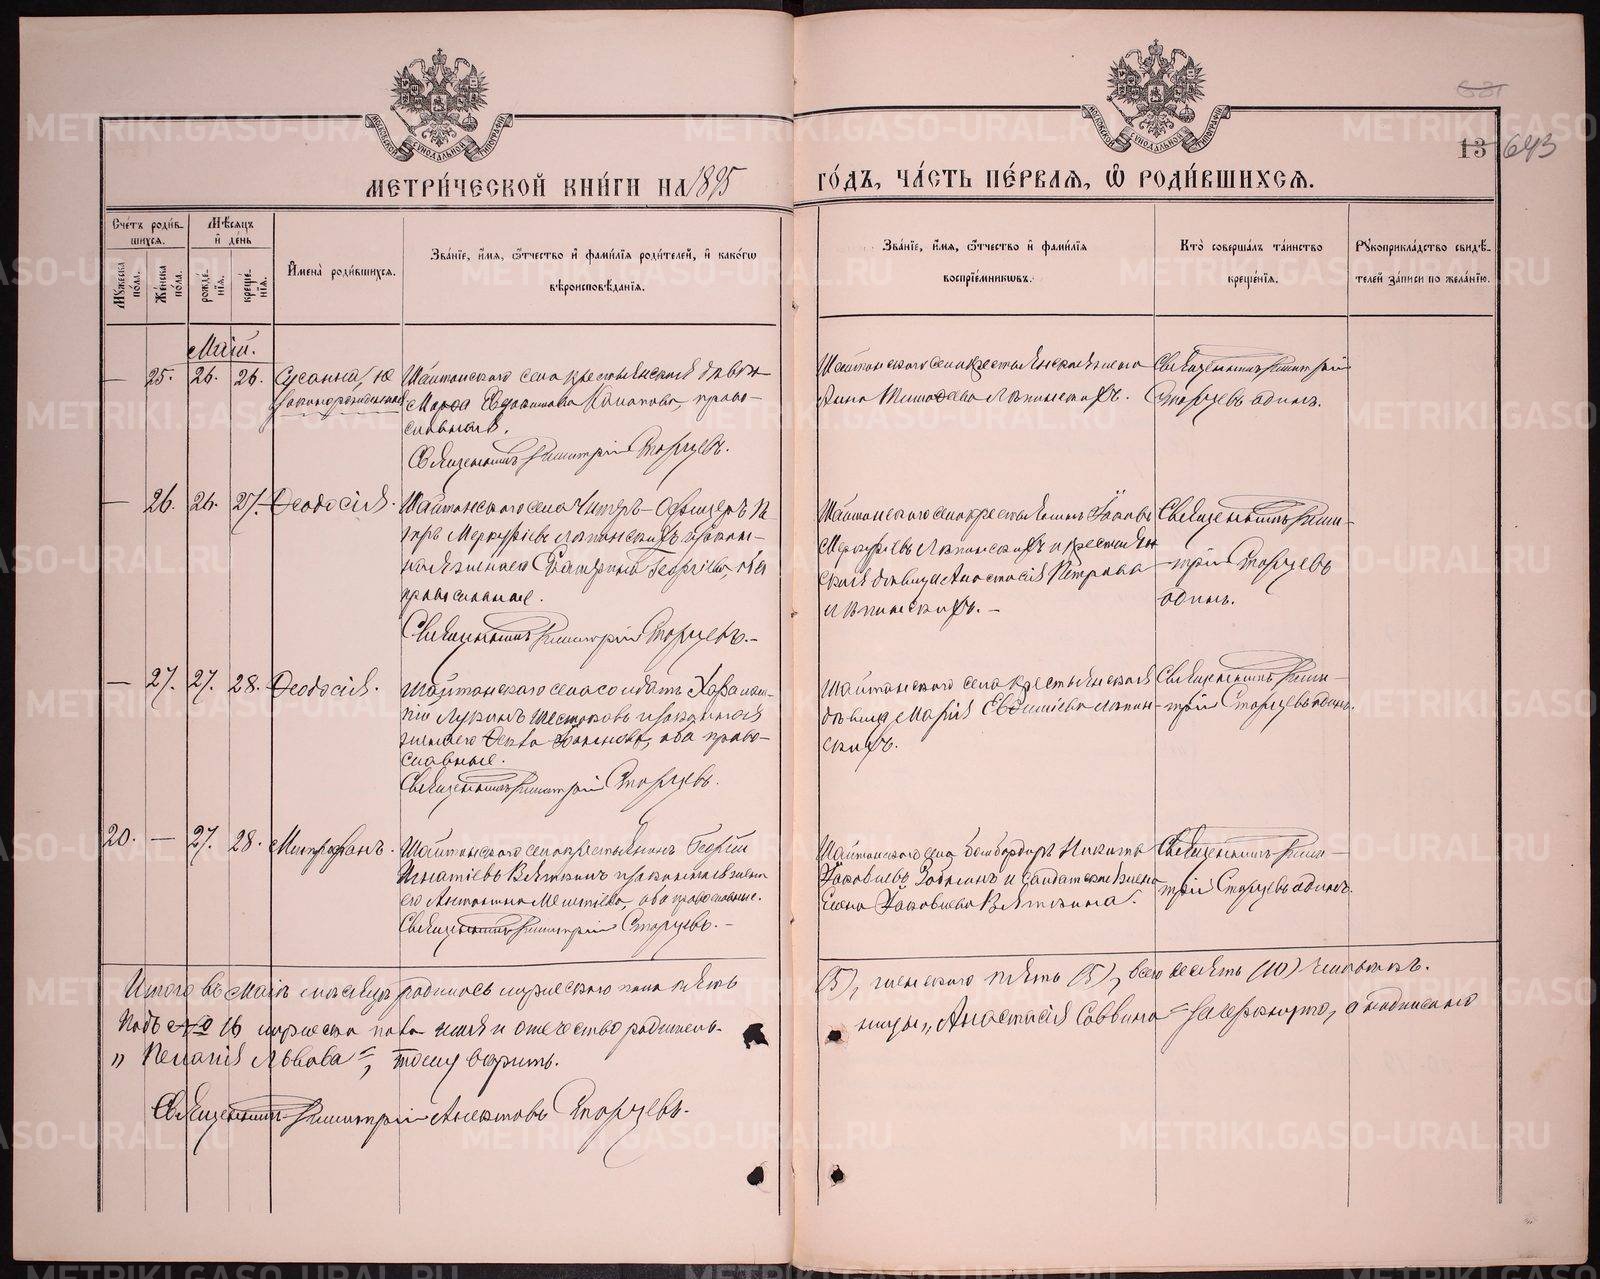 МОСКОВСКОЙ СѴНОДАЛЬНОЙ ТИПОГРАФІИ
МОСКОВСКОЙ СѴНОДАЛЬНОЙ ТИПОГРАФІИ
631
13 643
МЕТРИ́ЧЕСКОЙ КНИ́ГИ НА 1895
ГО́ДЪ, ЧА́СТЬ ПЕ́РВАЯ, Ѡ РОДИ́ВШИХСЯ.
Сче́тъ роди́вшихся.
Му́жеска по́ла.
Же́нска по́ла.
Мѣ́сяцъ и де́нь
рожде́нія.
креще́нія.
Имена̀ роди́вшихся.
Зва́ніе, и́мя, ѻ́тчество и фами́лія роди́телей, и како́гѡ
вѣроисповѣ́данія.
Зва́ніе, и́мя, ѻ́тчество и фами́лія
воспріе́мникѡвъ.
Кто̀ соверша́лъ та́инство
креще́нія.
Рукоприкла́дство свидѣ́телей за́писи по жела́нію.
Май.
— 25. 26. 26. Сусанна, не
законорожденная
Шайтанскаго села крестьянская дѣвица
Марѳа Евдокимова, право-
славная.
Священникъ Димитрій Сторцевъ.
Шайтанскаго села крестьянская жена
Анна Тимоѳеева Ляпинскихъ.
Священникъ Димитрій
Сторцевъ один.
— 26. 26. 27. Ѳеодосія.
Шайтанскаго села Унтеръ-Офицеръ Пе-
тръ Меркурьевъ Ляпинскихъ и закон-
ная жена его Екатерина Георгіева, оба
православные.
Священникъ Димитрій Сторцевъ.—
Шайтанскаго села крестьянинъ Іаковъ
Меркурьевъ Ляпинскихъ и крестьян-
ская дѣвица Анастасія Петрова
Ляпинскихъ.—
Священникъ Дими-
трій Сторцевъ
одинъ.
— 27. 27. 28. Ѳеодосія.
Шайтанскаго села солдатъ Харлам-
пій Лукинъ Шестаковъ и законная
жена его Ѳекла, оба право-
славные.
Священникъ Димитрій Сторцевъ.
Шайтанскаго села крестьянская
дѣвица Марія Евдокимова Ляпин-
скихъ.
Священникъ Дими-
трій Сторцевъ одинъ.
20. — 27. 28. Митрофанъ.
Шайтанскаго села крестьянинъ Георгій
Игнатіевъ Вяткинъ и законная жена
его Антонина, оба православные.
Священникъ Димитрій Сторцевъ.—
Шайтанскаго села Бомбардиръ Никита
Іаковлевъ и солдатская жена
Елена Іаковлева Вяткина.
Священникъ Дими-
трій Сторцевъ одинъ.
Итого въ Маѣ мѣсяцѣ родилось мужескаго пола пять
(5), женскаго пять (5), всего десять (10) человѣкъ.
Подъ № 16 мужеска пола имя и отечество родитель-
ницы „Анастасія Саввина" зачеркнуто, а надписано
„Пелагія Львова", тому вѣрить.
Священникъ Димитрій Сторцевъ.